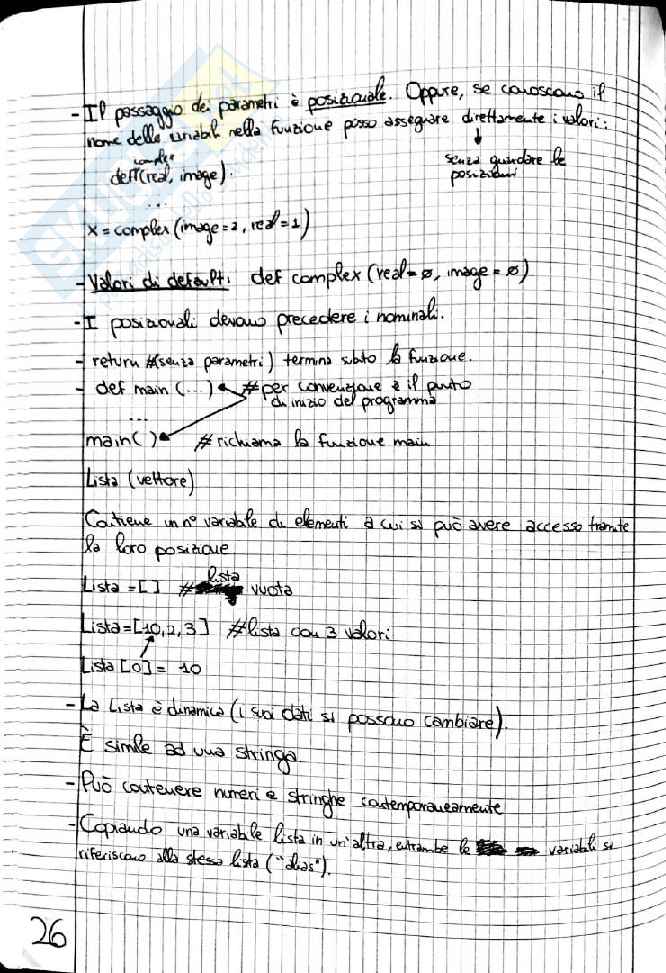 - Il passaggio dei parametri è posizionale. Oppure, se conoscono il
nome delle variabili nella funzione posso assegnare direttamente i valori:
senza guardare le
posizioni
complex
def(real, image).
...
x = complex(image=2, real=1)
- Valori di default: def complex (real=ø, image=ø)
- I posizionali devono precedere i nominali.
- return #(senza parametri) termina subito la funzione.
- def main (...) #per convenzione è il punto
di inizio del programma
...
main() #richiama la funzione main
Lista (vettore)
Contiene un n° variabile di elementi a cui si può avere accesso tramite
la loro posizione
Lista = [ ] # lista vuota
Lista=[10,2,3] #lista con 3 valori
Lista[0] = 10
- La Lista è dinamica (i suoi dati si possono cambiare).
È simile ad una stringa
- Può contenere numeri e stringhe contemporaneamente
- Copiando una variabile lista in un'altra, entrambe le variabili si
riferiscono alla stessa lista ("alias").
26